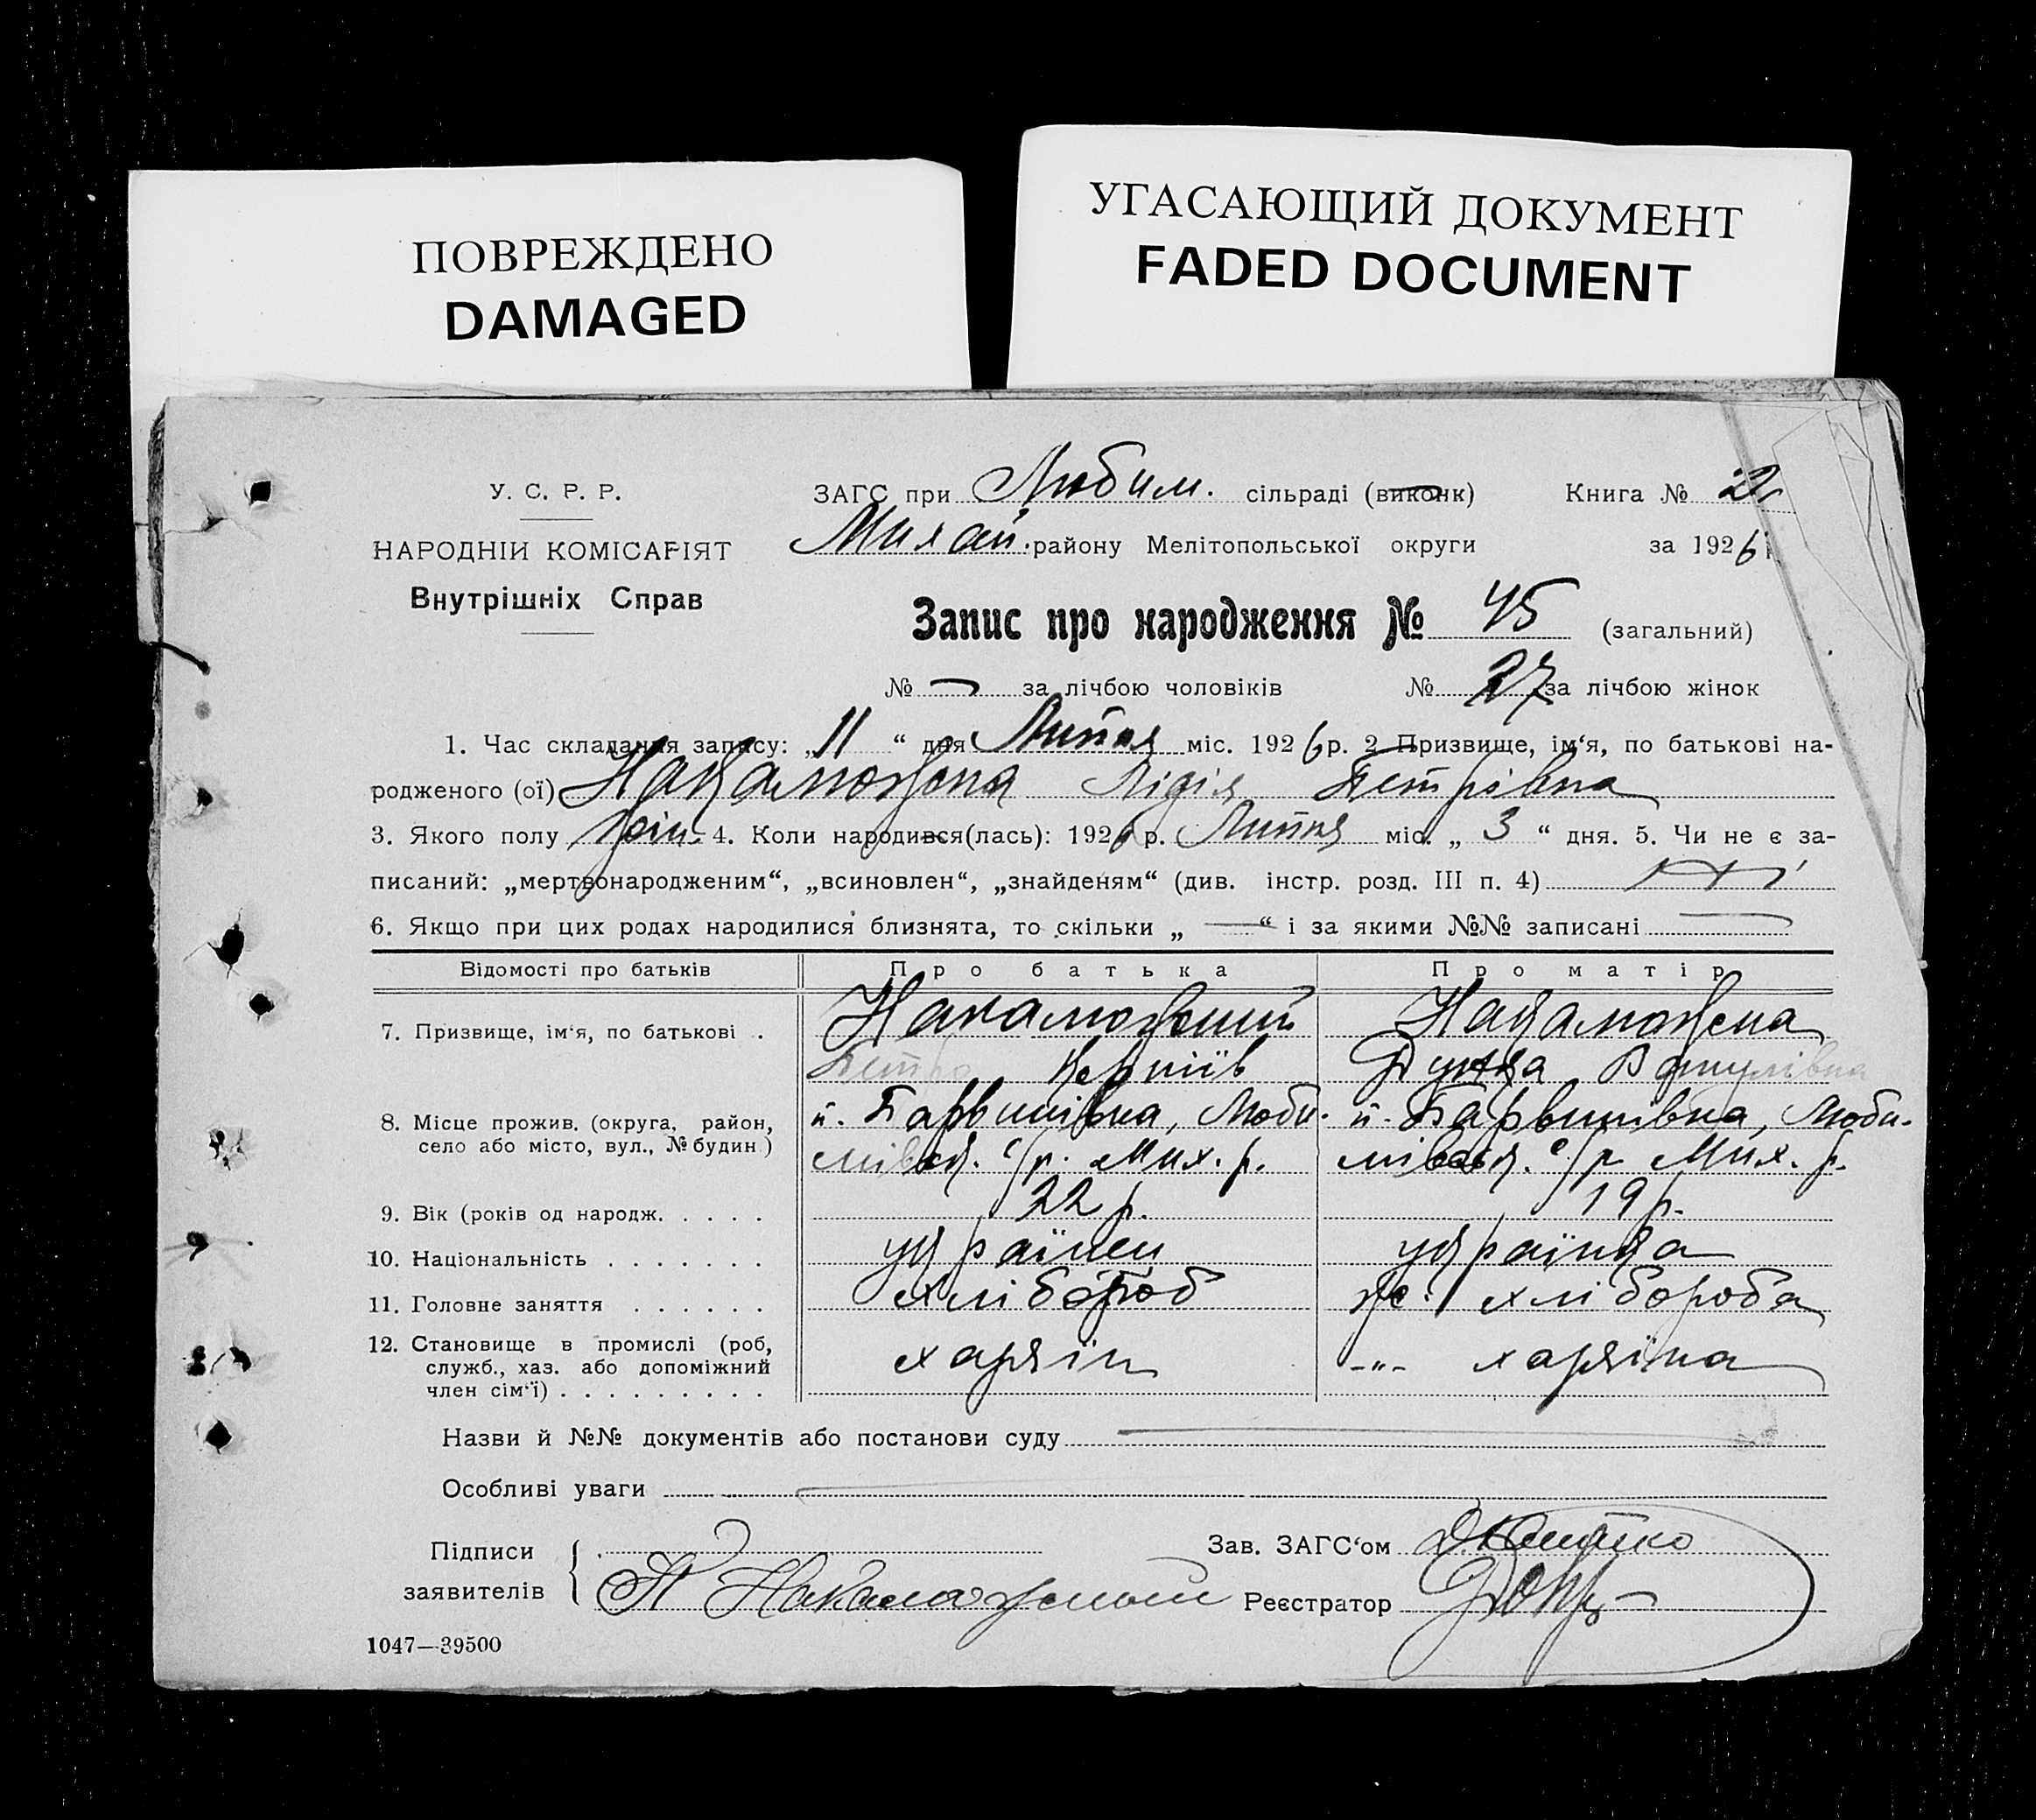 ПОВРЕЖДЕНО
DAMAGED
УГАСАЮЩИЙ ДОКУМЕНТ
FADED DOCUMENT
У. С. Р. Р.
НАРОДНІЙ КОМІСАРІЯТ
Внутрішніх Справ
ЗАГС при Любим. сільраді (виконк) Книга № 2
Михай. району Мелітопольської округи за 1926 р.
Запис про народження № 45 (загальний)
№ — за лічбою чоловіків № 27 за лічбою жінок
1. Час складання запису: „11“ дня Липня міс. 1926 р. 2 Призвище, ім‘я, по батькові на-
родженого (ої) Лідія Петрівна
3. Якого полу жін. 4. Коли народився(лась): 1926 р. Липня міс. „ 3 “ дня. 5. Чи не є за-
писаний: „мертвонародженим“, „всиновлен“, „знайденям“ (див. інстр. розд. III п. 4) ні
6. Якщо при цих родах народилися близнята, то скільки „ — “ і за якими №№ записані —
Відомості про батьків Про батька Про матір
7. Призвище, ім‘я, по батькові .
Петро
8. Місце прожив. (округа, район, село або місто, вул., № будин) п. Барвинівка, Люби- п. Барвинівка, Люби-
мівськ. с/р. Мих. р. мівськ. с/р Мих. р.
9. Вік (років од народж. . . . . 22 р. 19 р.
10. Національність . . . . . . . українец українка
11. Головне заняття . . . . . . хлібороб ж. хлібороба
12. Становище в промислі (роб, служб., хаз. або допоміжний член сім‘ї) . . . . . . . . . харзяїн -„- харзяїна
Назви й №№ документів або постанови суду —
Особливі уваги —
Підписи заявителів
Зав. ЗАГС‘ом
Реєстратор
1047—39500